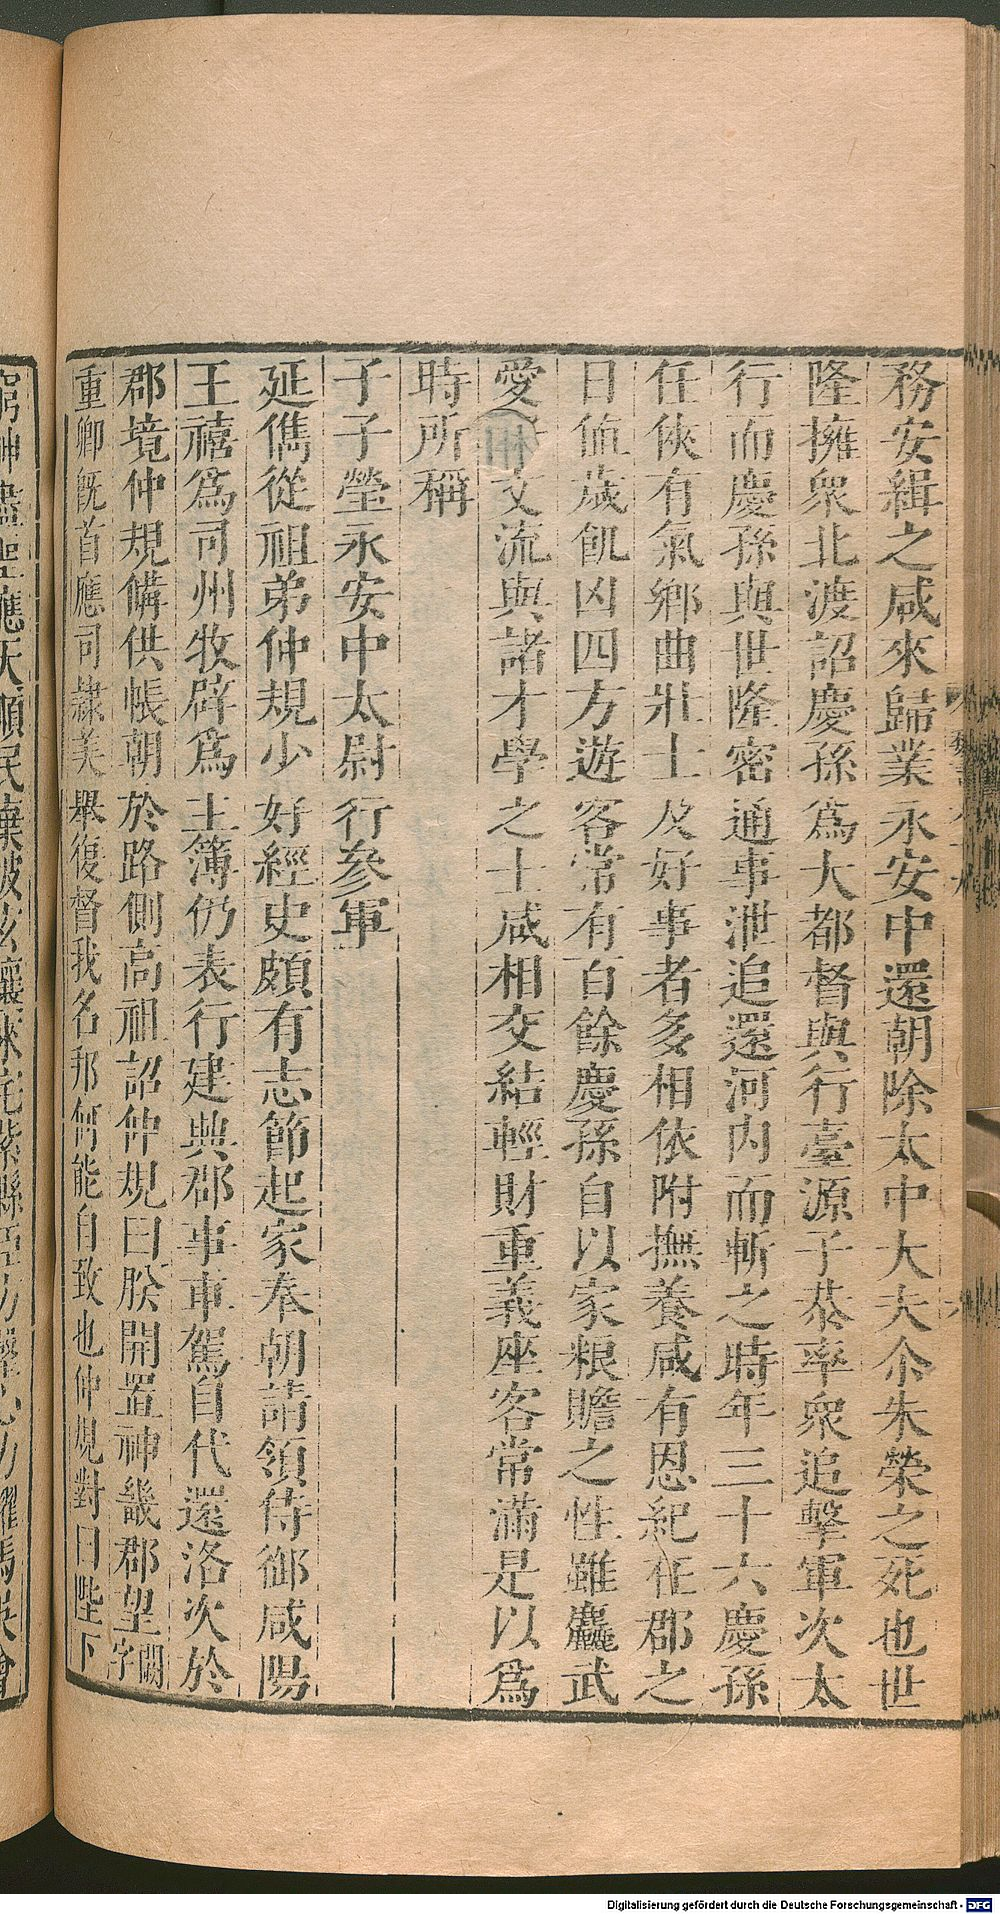 務安緝之咸來歸業永安中還朝除太中大夫尒朱榮之死也世
隆擁衆北渡詔慶孫爲大都督與行臺源子恭率衆追擊軍次太
行而慶孫與世隆密通事泄追還河内而斬之時年三十六慶孫
任俠有氣鄉曲壯士及好事者多相依附撫養咸有恩紀在郡之
日値歲飢凶四方遊客常有百餘慶孫自以家粮贍之性雖麤武
愛好文流與諸才學之士咸相交結輕財重義座客常滿是以爲
時所稱
子子瑩永安中太尉行參軍
延儁從祖弟仲規少好經史頗有志節起家奉朝請領侍御咸陽
王禧爲司州牧辟爲主簿仍表行建興郡事車駕自代還洛次於
郡境仲規備供帳朝於路側高祖詔仲規曰朕開置神畿郡望闕字
重卿旣首應司隸美舉復督我名邦何能自致也仲規對曰陛下
窮神盡聖應天順民棄彼玄壤來宅紫縣臣方罄心力躍馬吳會